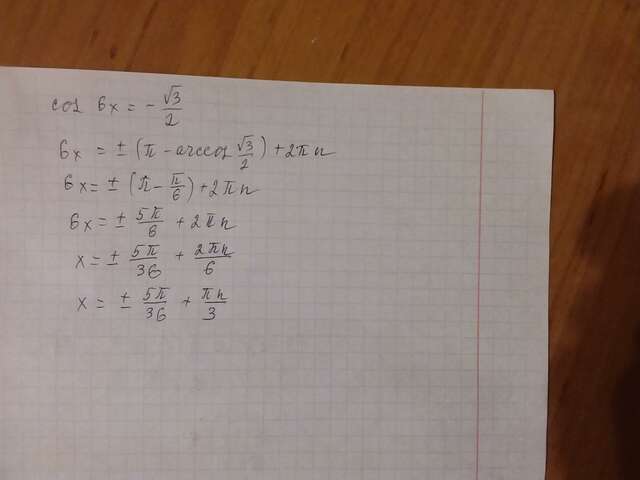 cos 6x = - √3/2
6x = ± (π - arccos √3/2) + 2πn
6x = ± (π - π/6) + 2πn
6x = ± 5π/6 + 2πn
x = ± 5π/36 + 2πn/6
x = ± 5π/36 + πn/3